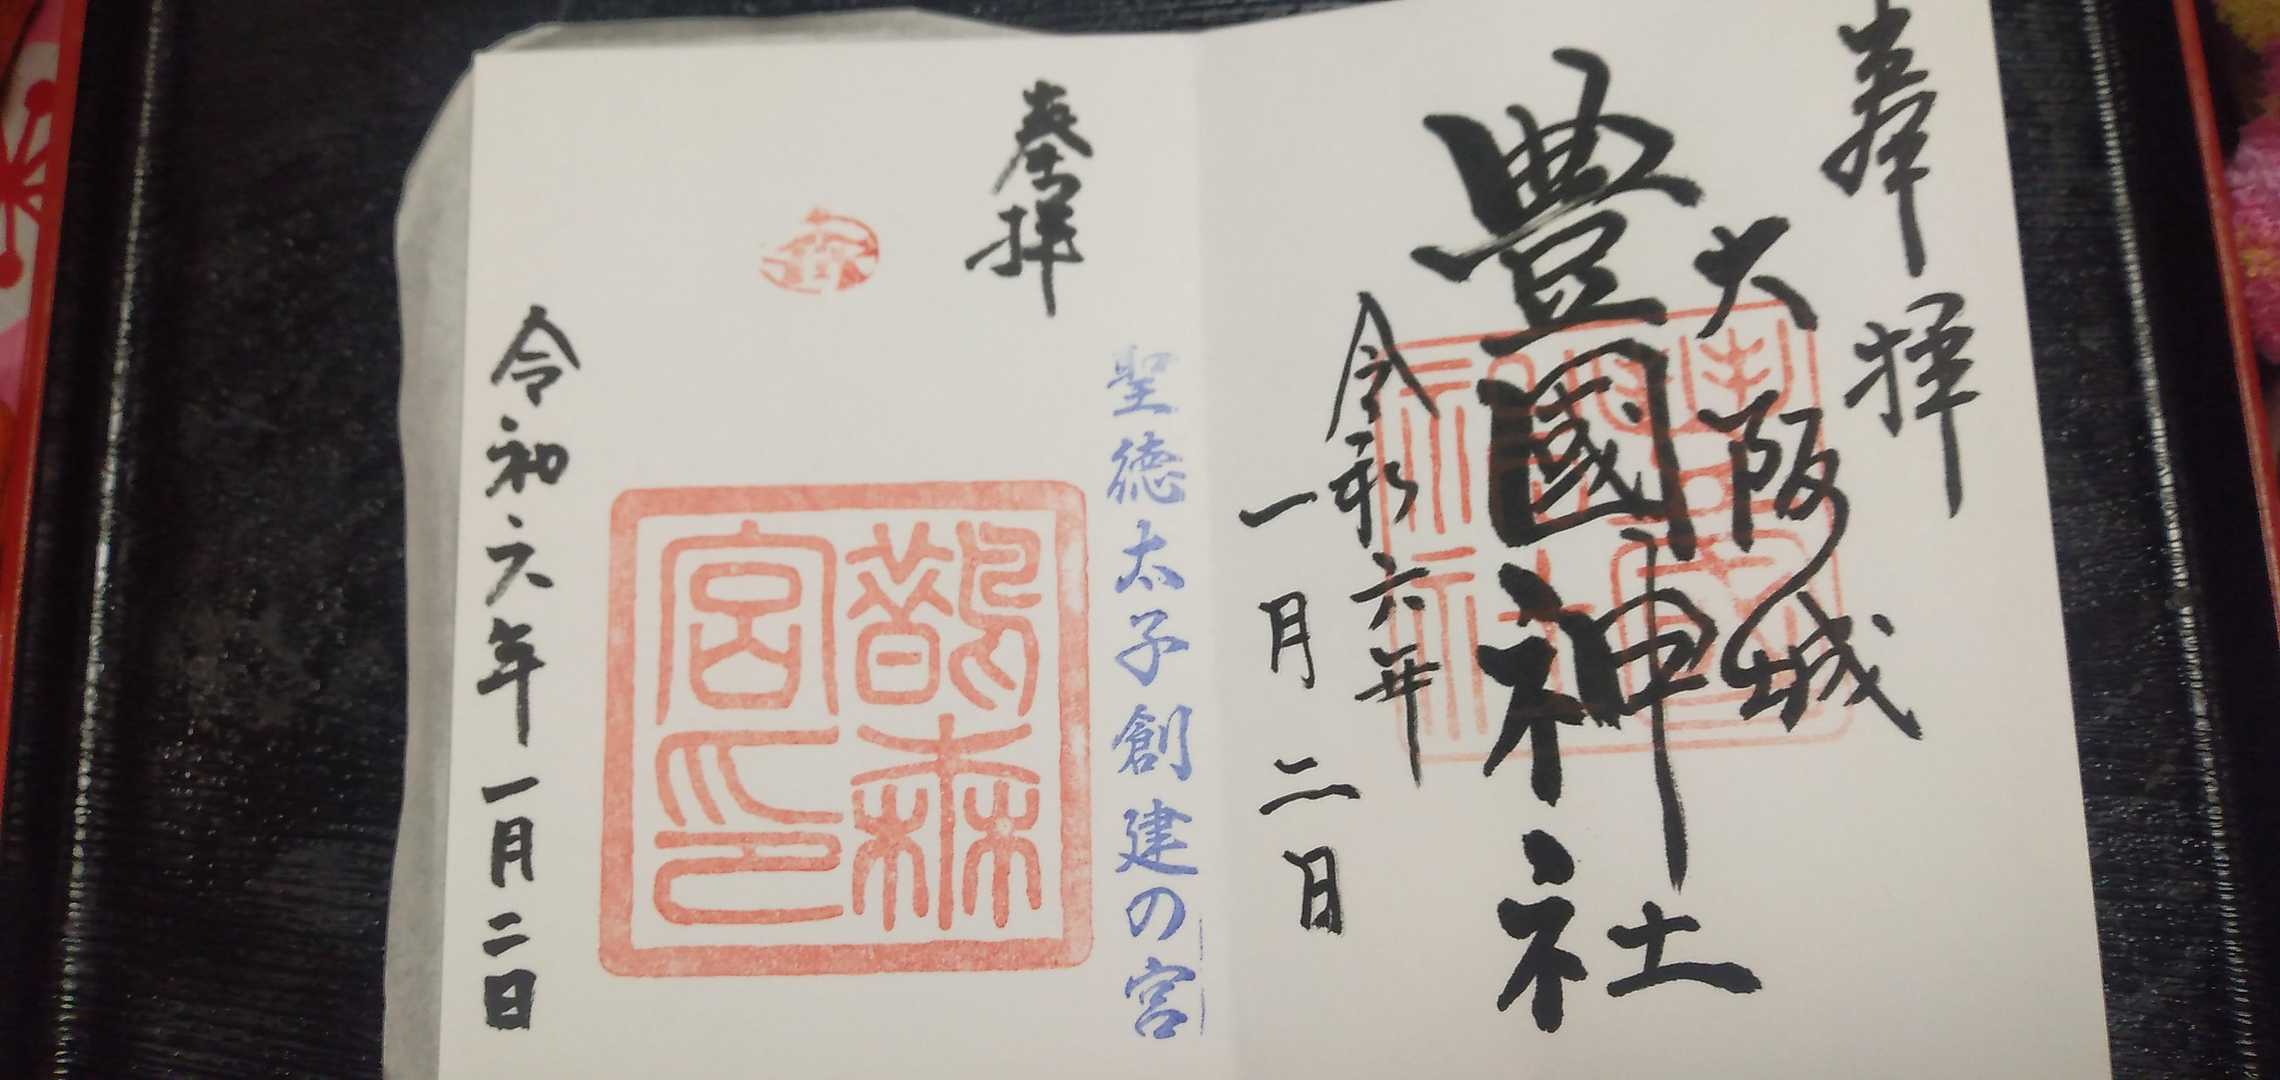 奉拝
大阪城
豊國神社
令和六年
一月二日
聖徳太子創建の宮
奉拝
鵲森
宮印
令和六年一月二日